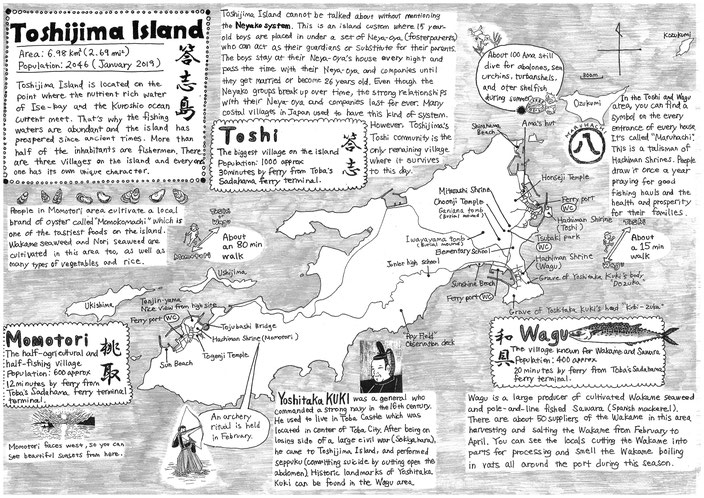 Toshijima Island
Area: 6.98 km² (2.69 mi²)
Population: 2046 (January 2019)
答志島
Toshijima Island is located on the
point where the nutrient rich water
of Ise-bay and the Kuroshio ocean
current meet. That's why the fishing
waters are abundant and the island has
prospered since ancient times. More than
half of the inhabitants are fishermen. There
are three villages on the island and everyone
has its own unique character.
Toshijima Island cannot be talked about without mentioning
the Neyako system. This is an island custom where 15 year-
old boys are placed in under a set of Neya-oya (foster parents)
who can act as their guardians or substitute for their parents.
The boys stay at their Neya-oya's house every night and
pass the time with their Neya-oya and companions until
they get married or become 26 years old. Even though the
Neyako groups break up over time, the strong relationships
with their Neya-oya and companions last for ever. Many
costal villages in Japan used to have this kind of system.
However, Toshijima's
Toshi community is the
only remaining village
where it survives
to this day.
Toshi
答志
The biggest village on the island
Population: 1000 approx
30 minutes by ferry from Toba's
Sadahama ferry terminal.
About 100 Ama still
dive for abalones, sea
urchins, turbanshells,
and oter shellfish
during summer
Kozukumi
800m
Ozukumi
In the Toshi and Wagu
area, you can find a
symbol on the every
entrance of every house.
It's called "Maruhachi".
This is a talisman of
Hachiman Shrines. People
draw it once a year
praying for good
fishing hauls and the
health and prosperity
for their families.
MARUHACHI
八
Shirahama
Beach
Ama's hut
Honseji Temple
Mitozashi Shrine
Choonji Temple
Ganjina tomb
(Burial mound)
Iwayayama tomb
(Burial mound)
Elementary School
Junior high school
Ferry port
WC
Hachiman Shrine
(Toshi)
Tsubaki park
WC
Hachiman Shrine
(Wagu)
Grave of Yoshitaka Kuki's body
"Dozuka"
Sunshine Beach
Ferry port WC
Grave of Yoshitaka Kuki's head "Kubi-zuka"
TOSHI
WAGU
About
a 15 min
walk
People in Momotori area cultivate a local
brand of oyster called "Momokomachi" which is
one of the tastiest foods on the island.
Wakame seaweed and Nori seaweed are
cultivated in this area too, as well as
many types of vegetables and rice.
MOMOTORI
About
an 80 min
walk
Ushijima
Ukishima
Tenjin-yama
Nice view from high site
Ferry port WC
Tojubashi Bridge
Hachiman Shrine (Momotori)
Togenji Temple
Sun Beach
Observation deck
Momotori
桃取
The half-agricultural and
half-fishing village
Population: 600 approx
12 minutes by ferry from
Toba's Sadahama ferry terminal
terminal.
Momotori faces west, so you can
see beautiful sunsets from here.
An archery
ritual is held
in February.
Yoshitaka KUKI was a general who
commanded a strong navy in the 16th century.
He used to live in Toba Castle which was
located in center of Toba City. After being on
losing side of a large civil war (Sekigahara),
he came to Toshijima Island, and performed
seppuku (committing suicide by cutting open the
abdomen). Historic landmarks of Yoshitaka
Kuki can be found in the Wagu area.
Wagu
和具
The village known for Wakame and Sawara
Population: 400 approx
20 minutes by ferry from Toba's Sadahama
ferry terminal.
Wagu is a large producer of cultivated Wakame seaweed
and pole-and-line fished Sawara (Spanish mackerel).
There are about 50 suppliers of the Wakame in this area
harvesting and salting the Wakame from February to
April. You can see the locals cutting the Wakame into
parts for processing and smell the Wakame boiling
in vats all around the port during this season.